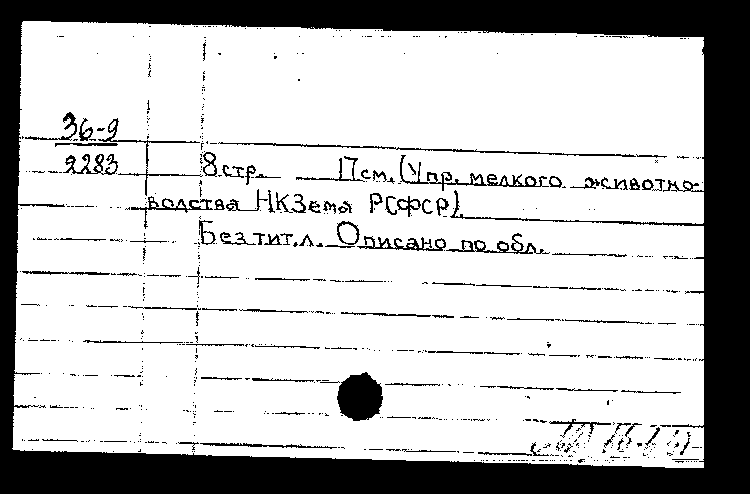 36-9
2283 8 стр. 17 см. (Упр. мелкого животно-
водства НКЗема РСФСР).
Без тит. л. Описано по обл.